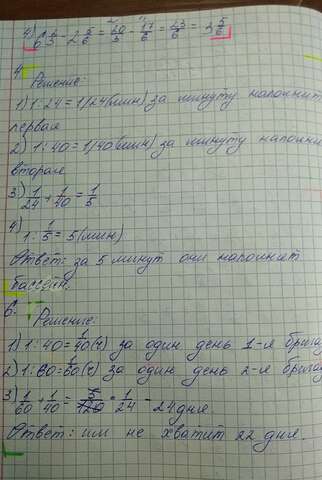 4) 6 2/3 - 2 5/6 = 20/3 - 17/6 = 23/6 = 3 5/6
4
Решение:
1) 1:24 = 1/24(мин) за минуту наполнит
первая
2) 1:40 = 1/40(мин) за минуту наполни
вторая
3) 1/24 + 1/40 = 1/5
4)
1: 1/5 = 5(мин)
Ответ: за 5 минут они наполнят
бассейн.
6.
Решение:
1) 1:40 = 1/40(ч) за один день 1-я брига
2) 1:60 = 1/60(ч) за один день 2-я брига
3) 1/60 + 1/40 = 5/120 = 1/24 - 24 дня.
Ответ: им не хватит 22 дня.